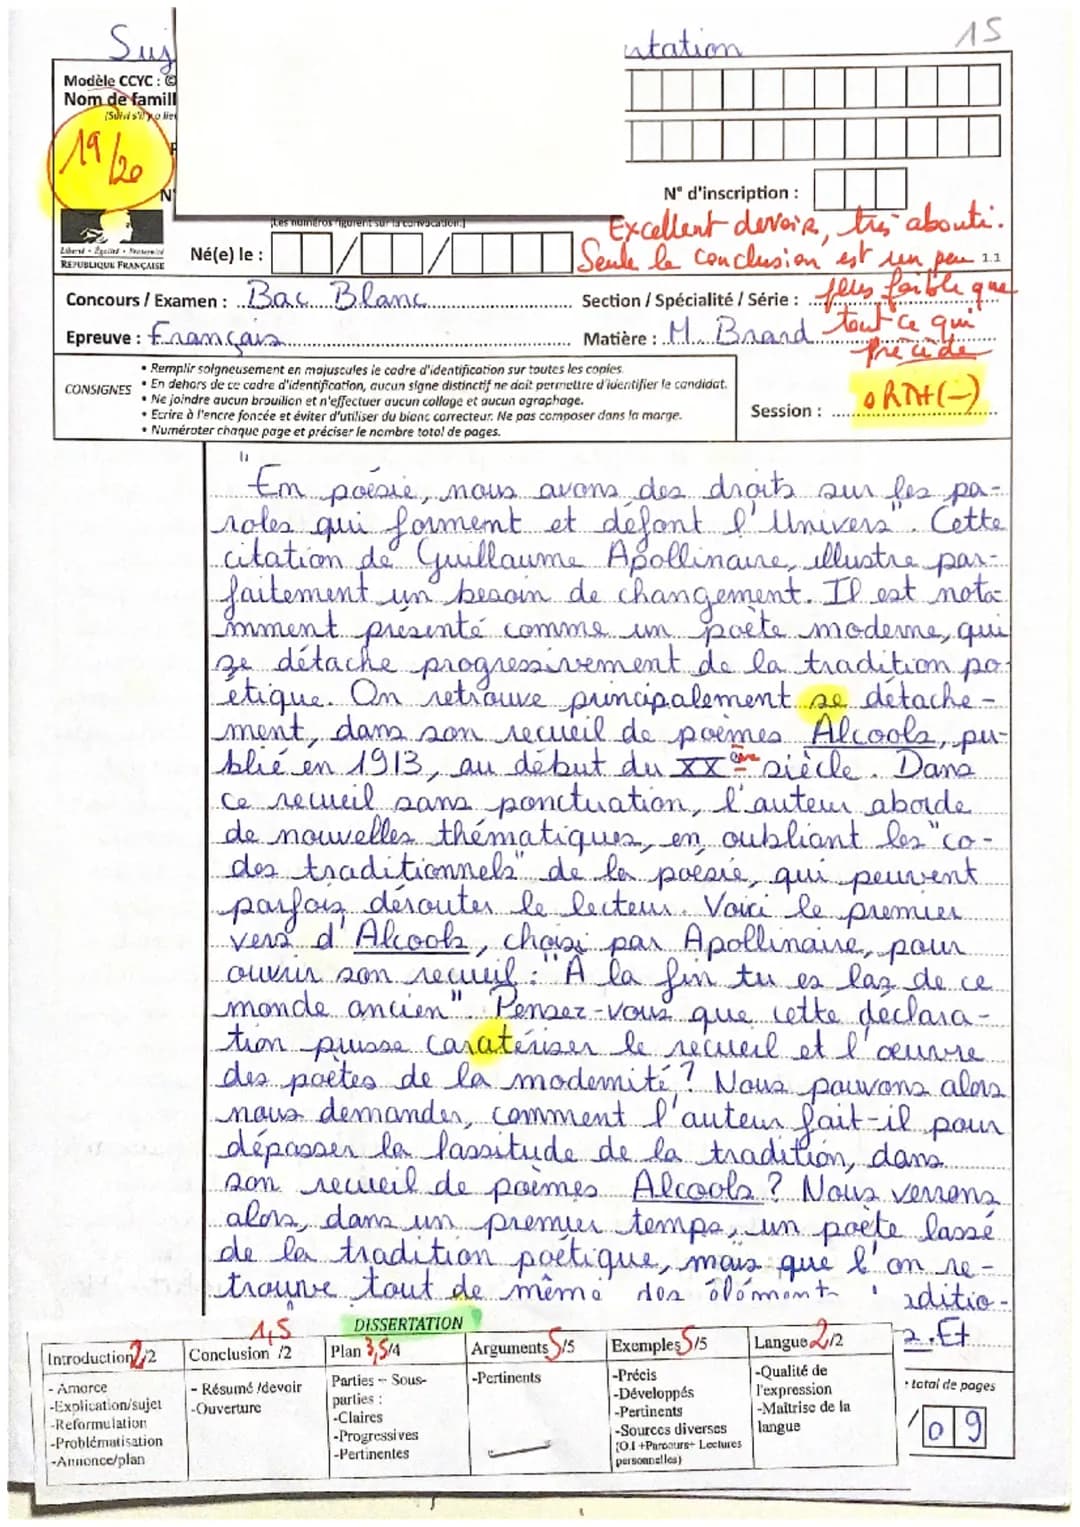 Suj
ntation
15
Modèle CCYC : ©
Nom de famill
(Suivi s'il y a lieu
19/20
N°
N° d'inscription :
(Les numéros figurent sur la convocation.)
Liberté • Égalité • Fraternité
RÉPUBLIQUE FRANÇAISE
Né(e) le :
/
/
1.1
Excellent devoir, très abouti.
Seule la conclusion est un peu
plus faible que
tout ce qui
précède
Concours / Examen : Bac Blanc
Section / Spécialité / Série :
Epreuve : Français
Matière : M. Brand
CONSIGNES
• Remplir soigneusement en majuscules le cadre d'identification sur toutes les copies.
• En dehors de ce cadre d'identification, aucun signe distinctif ne doit permettre d'identifier le candidat.
• Ne joindre aucun brouillon et n'effectuer aucun collage et aucun agraphage.
• Ecrire à l'encre foncée et éviter d'utiliser du blanc correcteur. Ne pas composer dans la marge.
• Numéroter chaque page et préciser le nombre total de pages.
Session :
ORTH(-)
"En poésie, nous avons des droits sur les pa-
roles qui forment et défont l'Univers". Cette
citation de Guillaume Apollinaire, illustre par-
faitement un besoin de changement. Il est nota-
mment présenté comme un poète moderne, qui
se détache progressivement de la tradition po-
étique. On retrouve principalement se détache-
ment, dans son recueil de poèmes Alcools, pu-
blié en 1913, au début du XXème siècle. Dans
ce recueil sans ponctuation, l'auteur aborde
de nouvelles thématiques, en oubliant les "co-
des traditionnels" de la poésie, qui peuvent
parfois dérouter le lecteur. Voici le premier
vers d'Alcools, choisi par Apollinaire, pour
ouvrir son recueil : "À la fin tu es las de ce
monde ancien". Pensez-vous que cette déclara-
tion puisse caratériser le recueil et l'œuvre
des poètes de la modernité ? Nous pouvons alors
nous demander, comment l'auteur fait-il pour
dépasser la lassitude de la tradition, dans
son recueil de poèmes Alcools ? Nous verrons
alors, dans un premier temps, un poète lassé
de la tradition poétique, mais que l'on re-
trouve tout de même des élément aditio-
. Et
DISSERTATION
Introduction 2/2
1,5
Conclusion /2
Plan 3,5/4
Arguments 5/5
Exemples 5/5
Langue 2/2
- Amorce
-Explication/sujet
-Reformulation
-Problématisation
-Annonce/plan
- Résumé /devoir
-Ouverture
Parties – Sous-
parties :
-Claires
-Progressives
-Pertinentes
-Pertinents
-Précis
-Développés
-Pertinents
-Sources diverses
(O.I +Parcours+ Lectures
personnelles)
-Qualité de
l'expression
-Maîtrise de la
langue
total de pages
/ 09